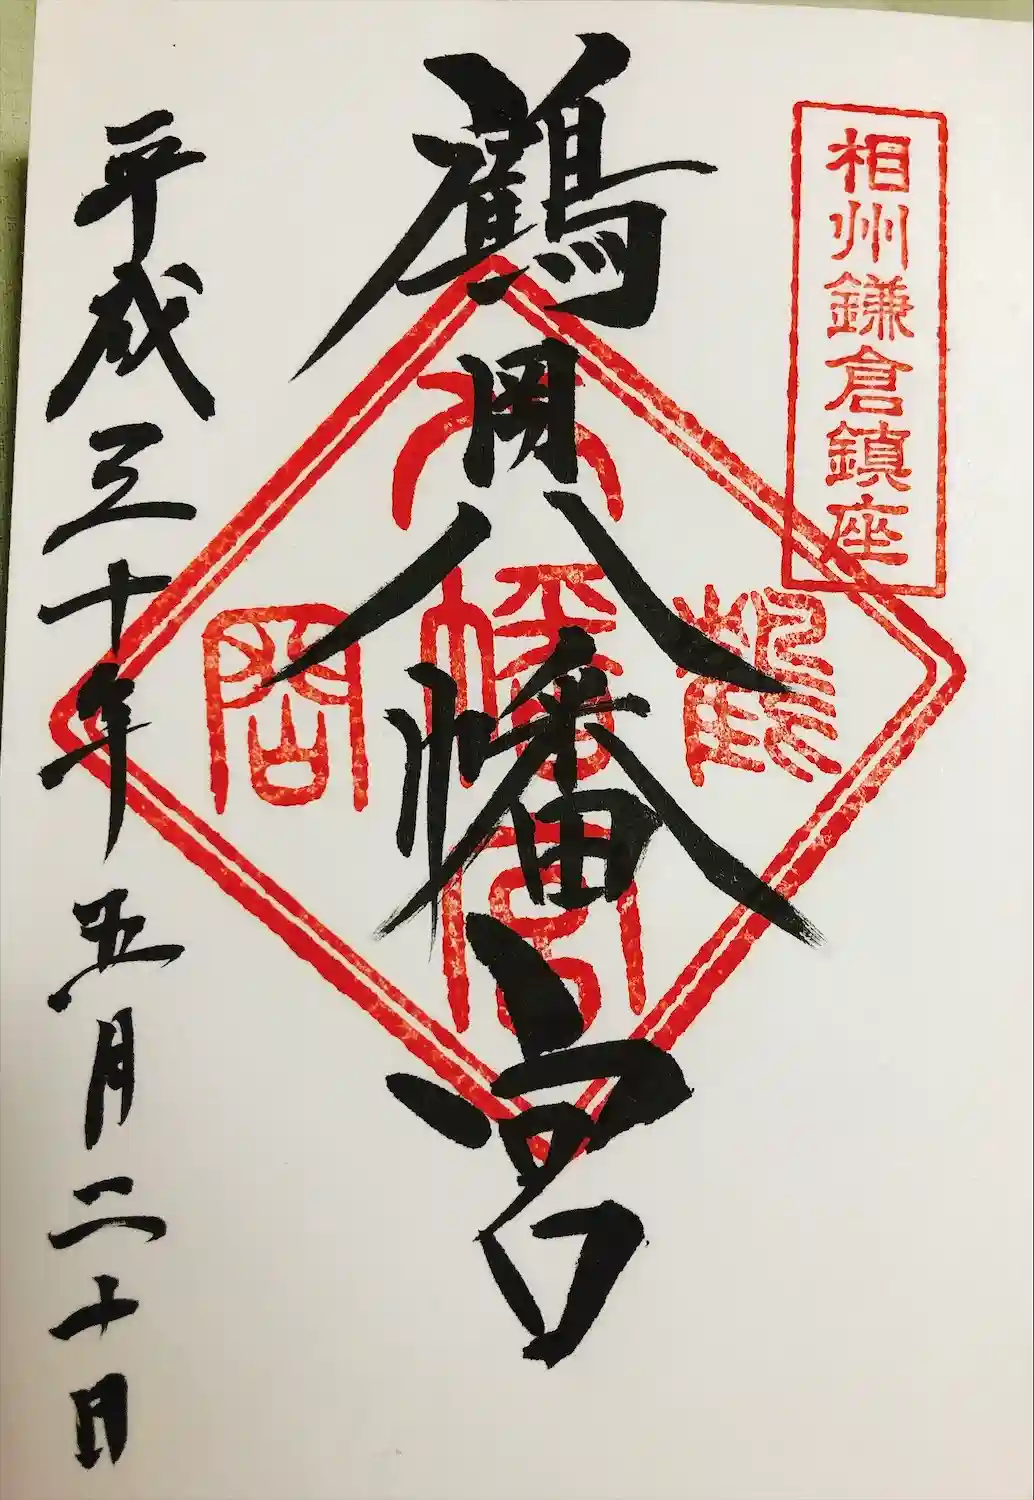 相州鎌倉鎮座
鶴岡八幡宮
鶴
八幡宮
岡
平成三十年五月二十日